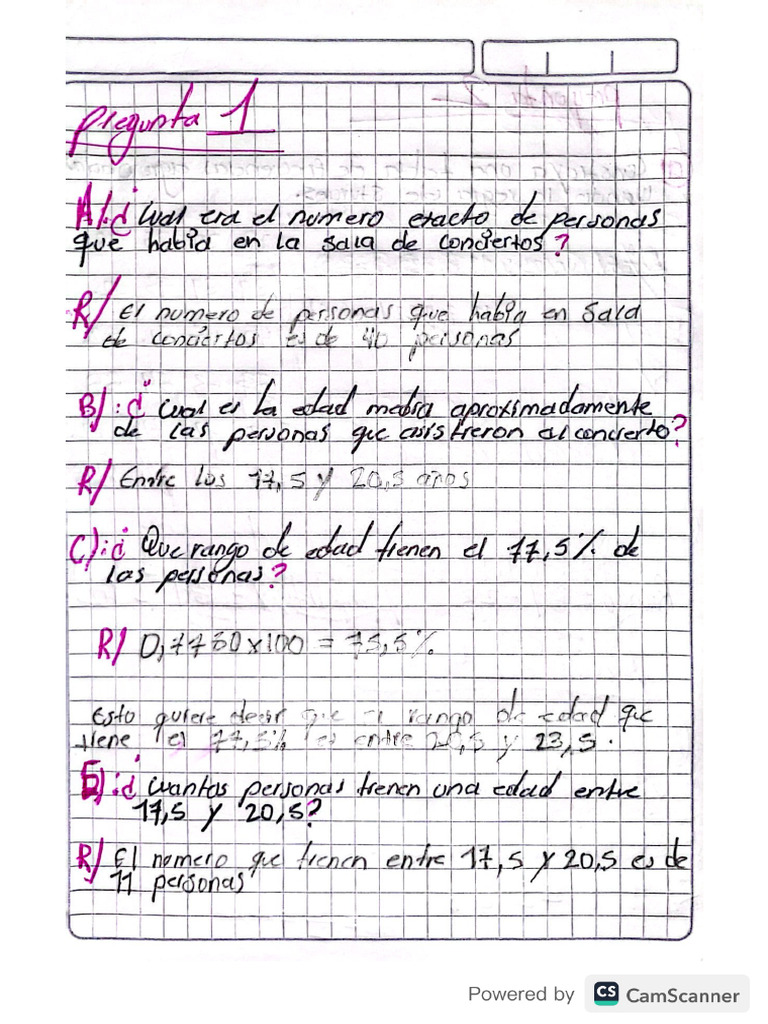 Pregunta 1
A/.¿ Cual era el numero exacto de personas
que habia en la sala de conciertos?
R/ El numero de personas que habia en Sala
de conciertos es de 40 personas
B/:¿ Cual es la edad media aproximadamente
de las personas que asistieron al concierto?
R/ Entre los 17,5 y 20,5 años
C):¿ Que rango de edad tienen el 77,5% de
las personas?
R/ 0,7750x100 = 75,5%
Esto quiere decir que el rango de edad que
tiene el 77,5% es entre 20,5 y 23,5.
E):¿ Cuantas personas tienen una edad entre
17,5 y 20,5?
R/ El numero que tienen entre 17,5 y 20,5 es de
11 personas
Powered by CS CamScanner